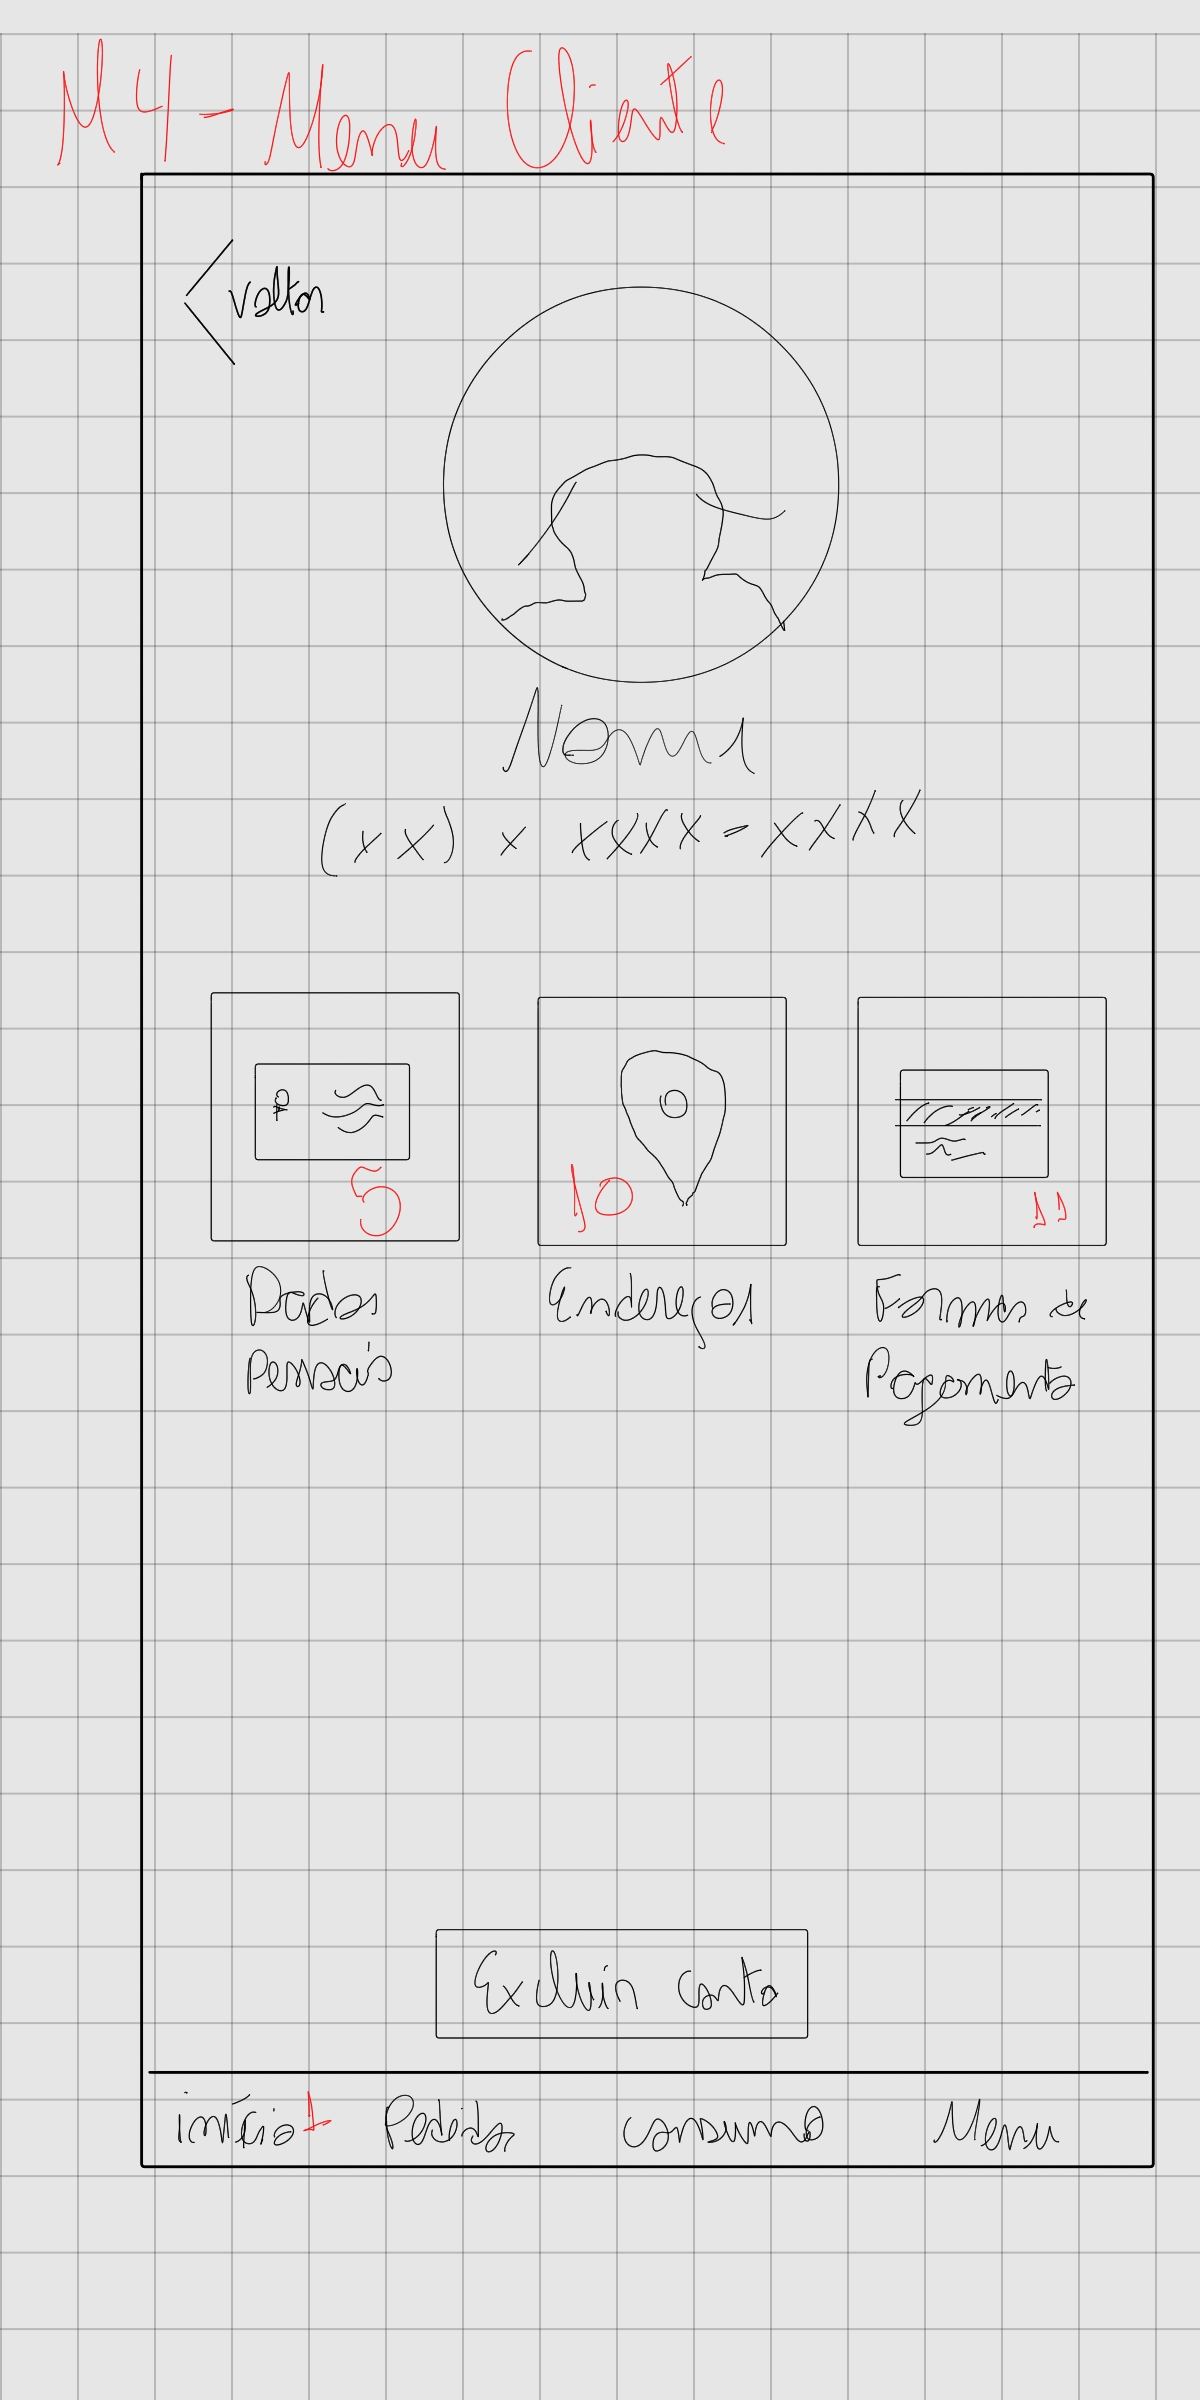 M4 - Menu Cliente
Voltar
Nome
(xx) x xxxx-xxxx
5
10
11
Dados
Pessoais
Endereços
Formas de
Pagamento
Excluir conta
início 1 Pedidos consumo Menu